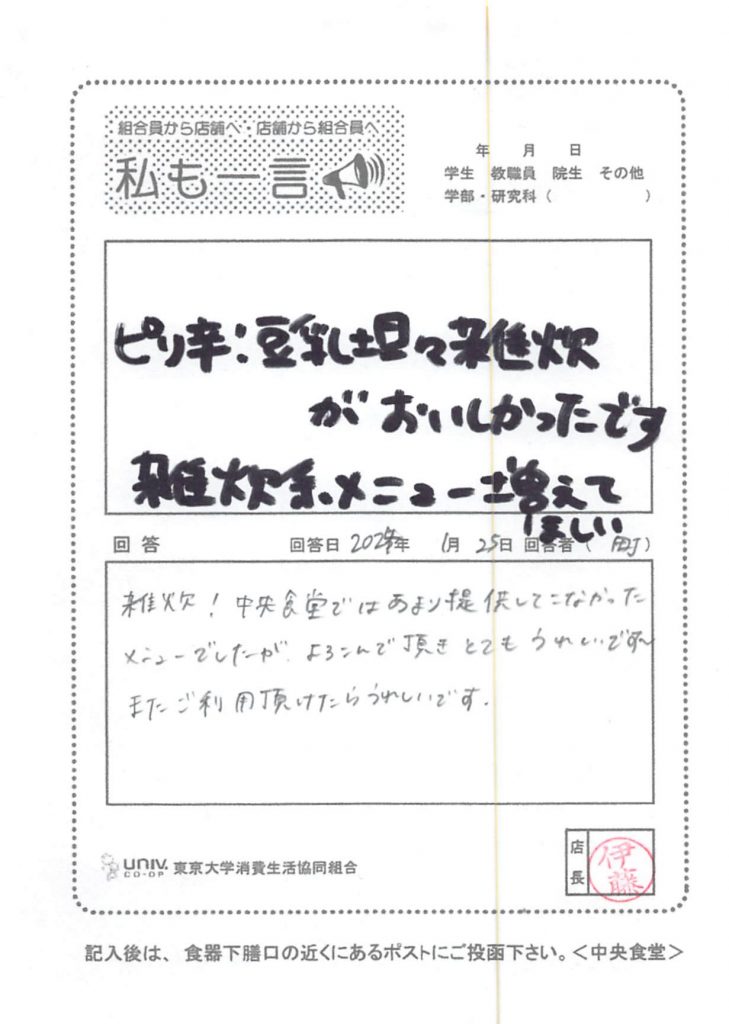 組合員から店舗へ・店舗から組合員へ
私も一言
年 月 日
学生 教職員 院生 その他
学部・研究科( )
ピリ辛:豆乳坦々雑炊
がおいしかったです
雑炊系、メニューご増えて
ほしい
回答 回答日 2024年 1月 25日 回答者( 町)
雑炊!中央食堂ではあまり提供してこなかった
メニューでしたが、よろこんで頂きとてもうれしいです。
またご利用頂けたらうれしいです。
UNIV. CO-OP 東京大学消費生活協同組合
店長 伊藤
記入後は、食器下膳口の近くにあるポストにご投函下さい。<中央食堂>